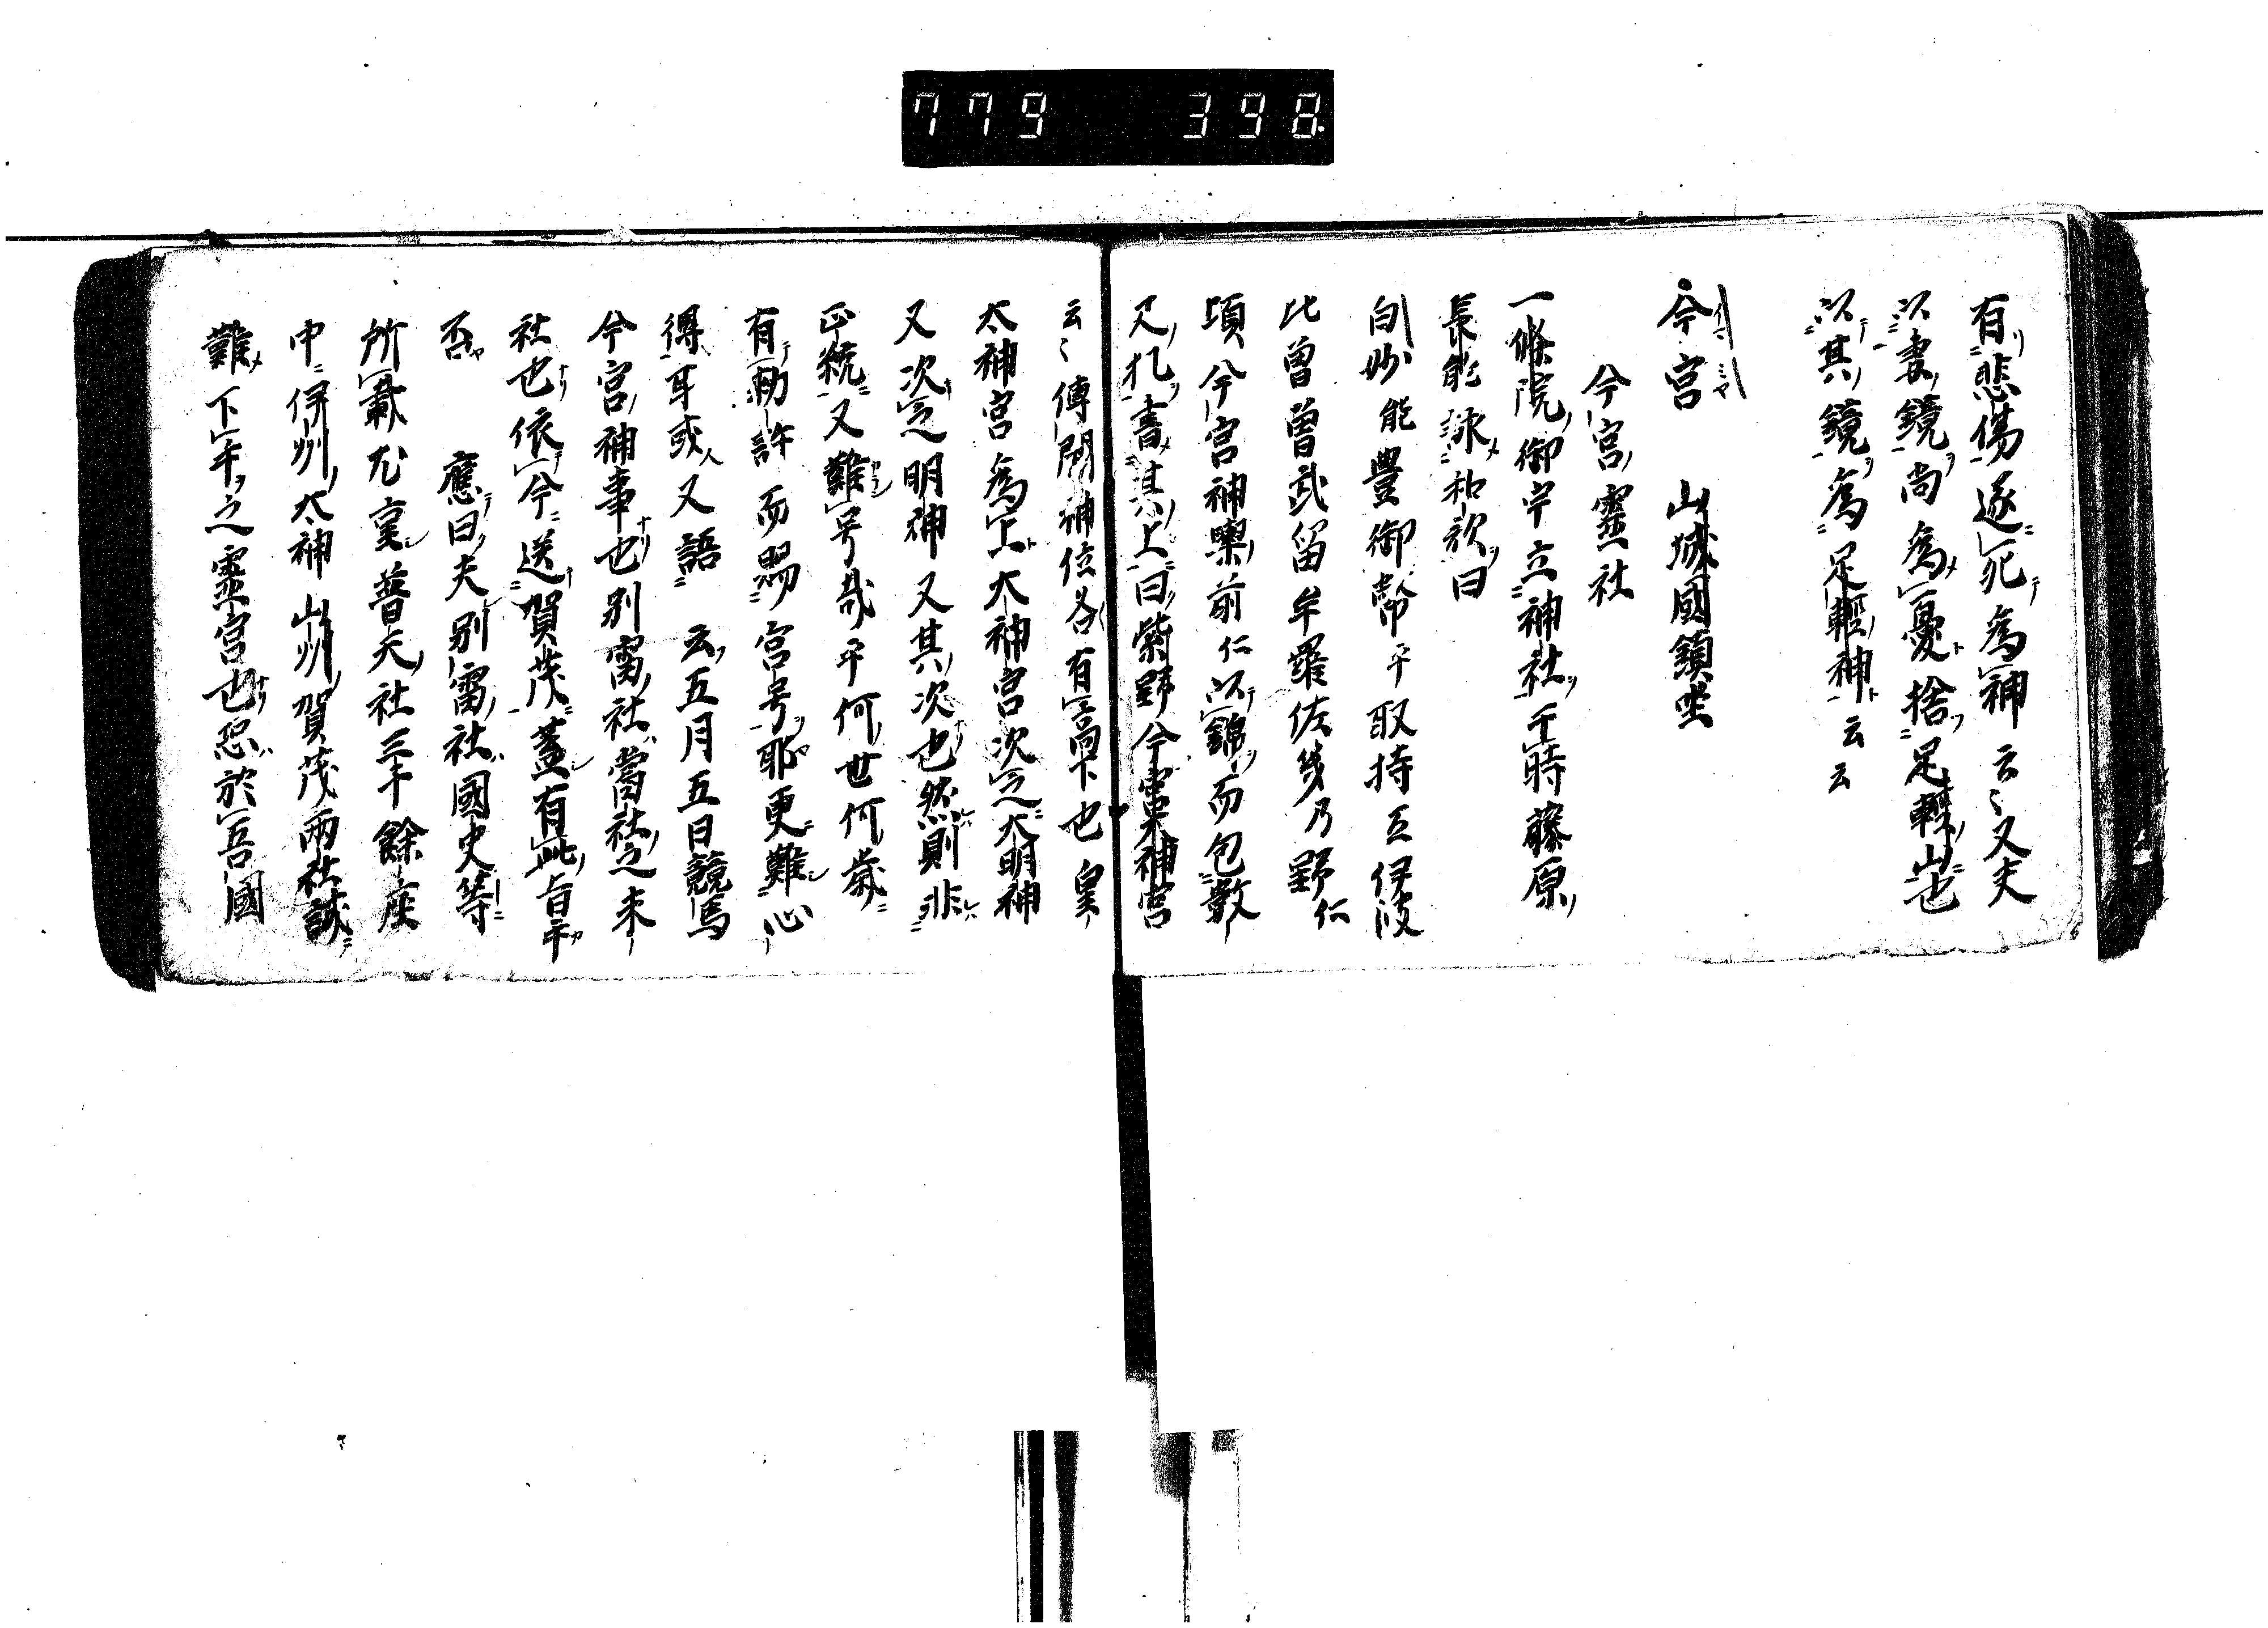 779 398
有悲傷遂死為神云〻又夫
以妻鏡尚為憂捨足輕山也
以其鏡為足輕神云云
今宮 山城國鎮坐
今宮靈社
一條院御宇立神社于時藤原
長能詠和歌曰
白妙能豊御幣乎取持互伊波
比曽曽武留牟羅佐幾乃野仁
頃今宮神輿前仁以錦而包數
尺札書其上曰紫野今宮大神宮
云〻傳聞神位各有高下也皇
太神宮為上大神宮次之大明神
又次之明神又其次也然則非
正統又難号哉乎何世何歳
有勅許而賜宮号耶更難心
得耳或人又語云五月五日競馬
今宮神事也別雷社當社之末
社也依今送賀茂蓋有此旨乎
否 應曰夫別雷社國史等
所載尤重普天社三千餘座
中伊州太神山州賀茂兩社誠
難下乎之靈宮也忍於吾國